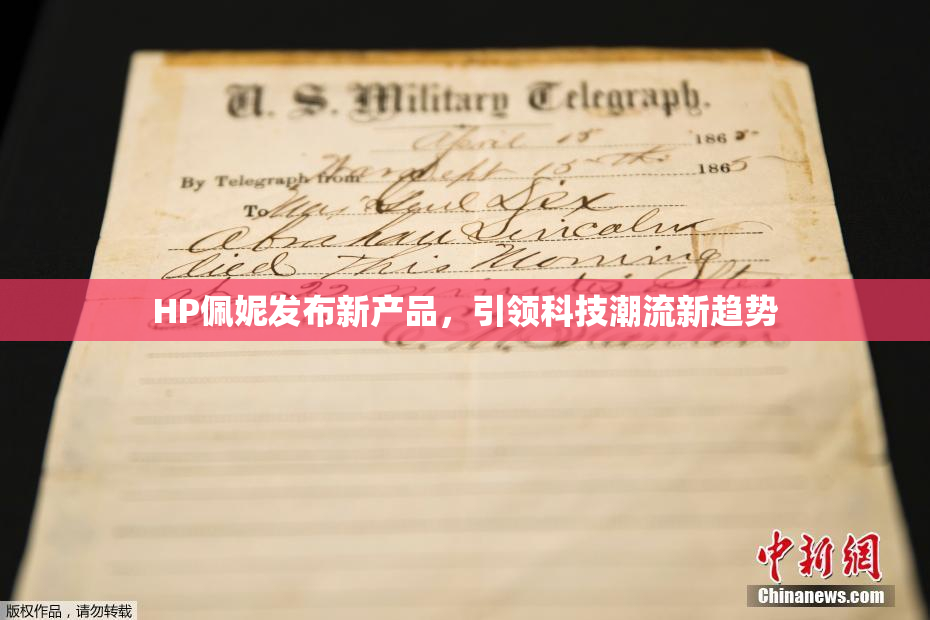 U. S. Military Telegraph.
April 15 1865
By Telegraph from War Dept 15th 1865
To Maj Genl Dix
Abraham Lincoln
died This Morning
at 22 minutes after
HP佩妮发布新产品，引领科技潮流新趋势
E. M. Stanton
中新网
Chinanews.com
版权作品，请勿转载